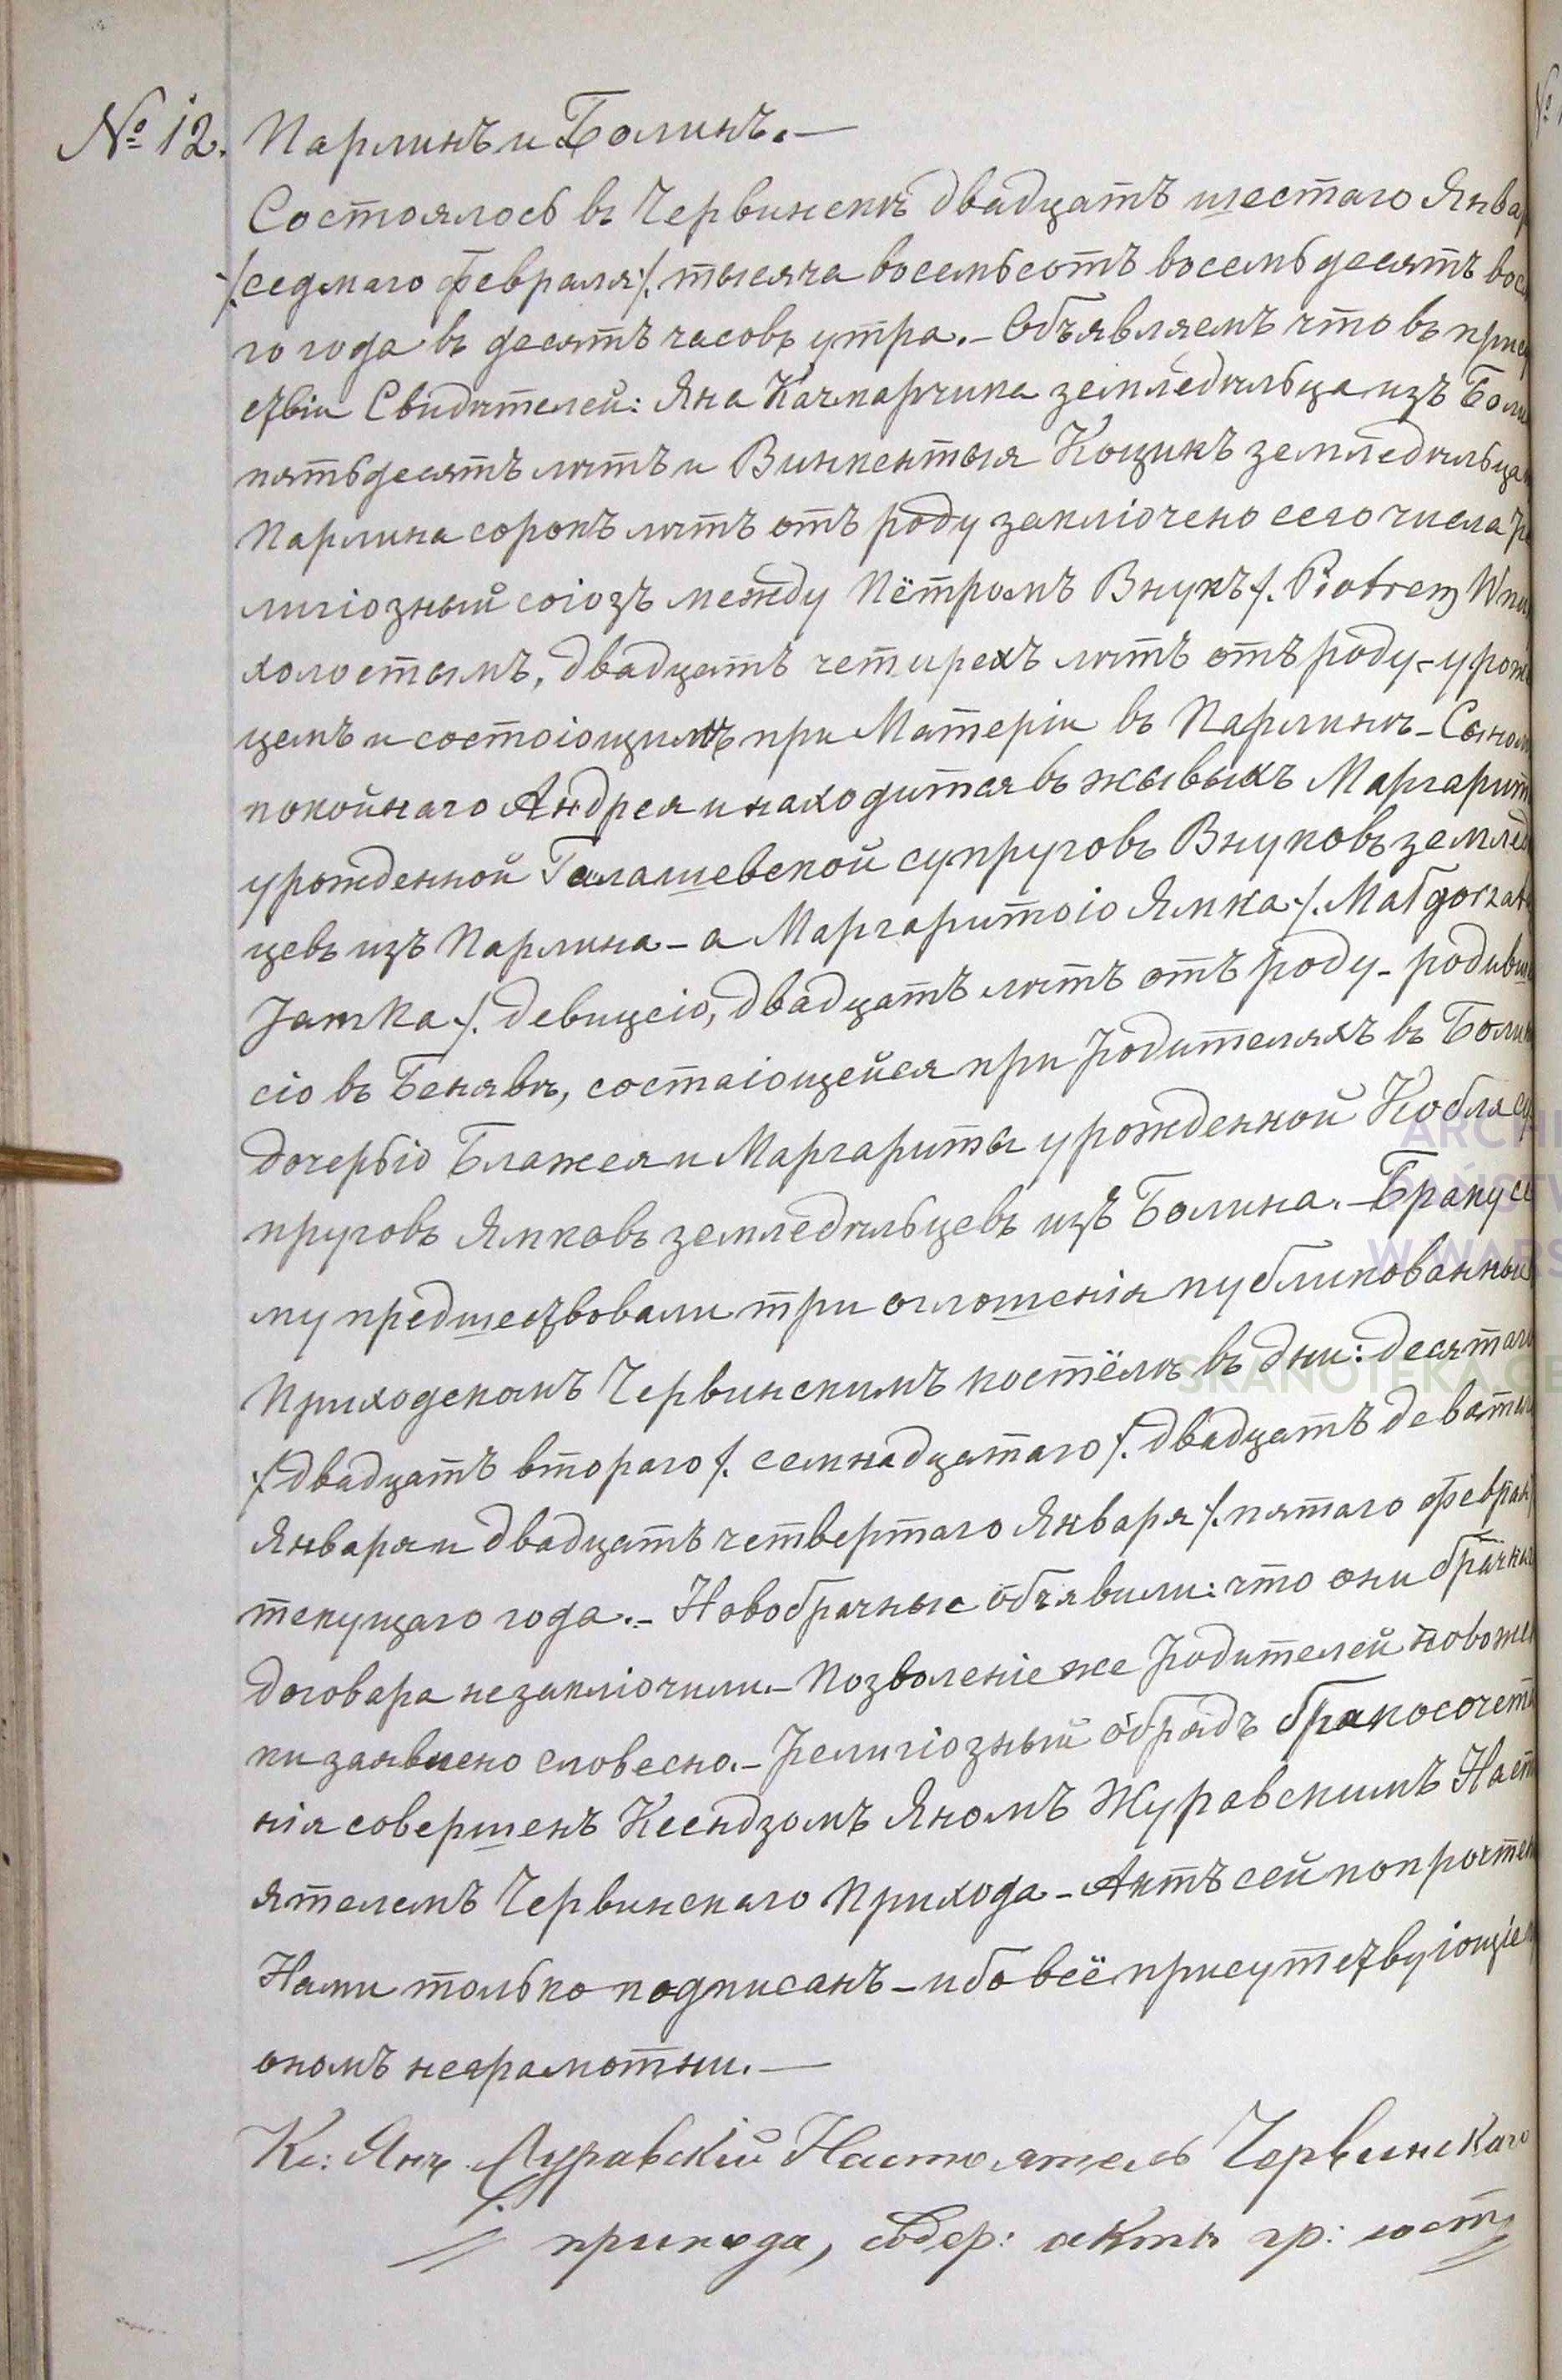 № 12. Парлинъ и Болинъ. —
Состоялось въ Червинскѣ двадцатъ шестаго Янва
/. седмаго Февраля ./. тысяча восемьсотъ восемьдесятъ вос
го года въ десятъ часовъ утра. – Объявляемъ что въ прис
ствіи Свидѣтелей: Яна Качмарчика земледѣльца изъ Боли
пятьдесятъ лѣтъ и Винкентыя Коцикъ земледѣльца
Парлина сорокъ лѣтъ отъ роду заключено сего числа ре
лигіозный союзъ между Пётромъ Внукъ /. Piotrem Wnu
холостымъ, двадцатъ четирехъ лѣтъ отъ роду – урож
цемъ и состоющимъ при Матеріи въ Парлинѣ – Сыном
покойнаго Андрея и находится въ жывыхъ Маргарит
урожденной Галашевской супруговъ Внуковъ землед
цевъ изъ Парлина – а Маргаритою Ямка /. Małgorzat
Jamka ./. девицею, двадцатъ лѣтъ отъ роду – родивш
сю въ Бенявѣ, состающейся при Родителяхъ въ Боли
дочерью Блажея и Маргариты урожденной Кобла су
пруговъ Ямковъ земледѣльцевъ изъ Болина. – Браку се
му предшествовали три оглошенія публикованныи
Приходскомъ Червинскимъ костёлѣ въ дни: десятаго
/. двадцатъ втораго /. семнадцатаго /. двадцатъ деватаг
Января и двадцатъ четвертаго Января /. пятаго Феврал
текущаго года. – Новобрачные объявили: что они брачнаг
договара незаключили. – Позволеніе же Родителей новожен
ки заявлено словесно. – Религіозный обрядъ бракосочета
нія совершенъ Ксендзомъ Яномъ Журавскимъ Наст
ятелемъ Червинскаго Прихода – Актъ сей попрочтен
Нами только подписанъ – ибо всё присутствующіе
ономъ неграмотни. —
Кс: Янъ Журавскій Настоятель Червинскаго
прихода, содер: акты гр: сост
ARCHI
PAŃSTW
W WARS
SKANOTEKA.GE